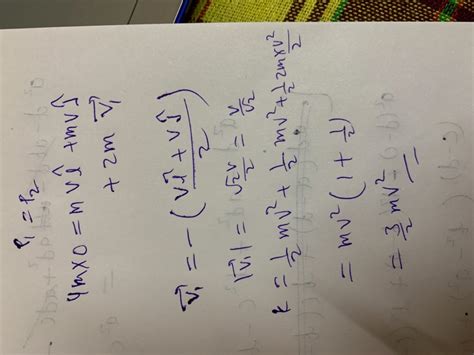 P₁ = P₂
4m×0 = mvî + mvĵ
+ 2m v⃗₁
v⃗₁ = -(vî + vĵ)/2
|v⃗₁| = √2v/2 = v/√2
k = 1/2 mv² + 1/2 mv² + 1/2 2m×v²/2
= mv² (1 + 1/2)
= 3/2 mv²